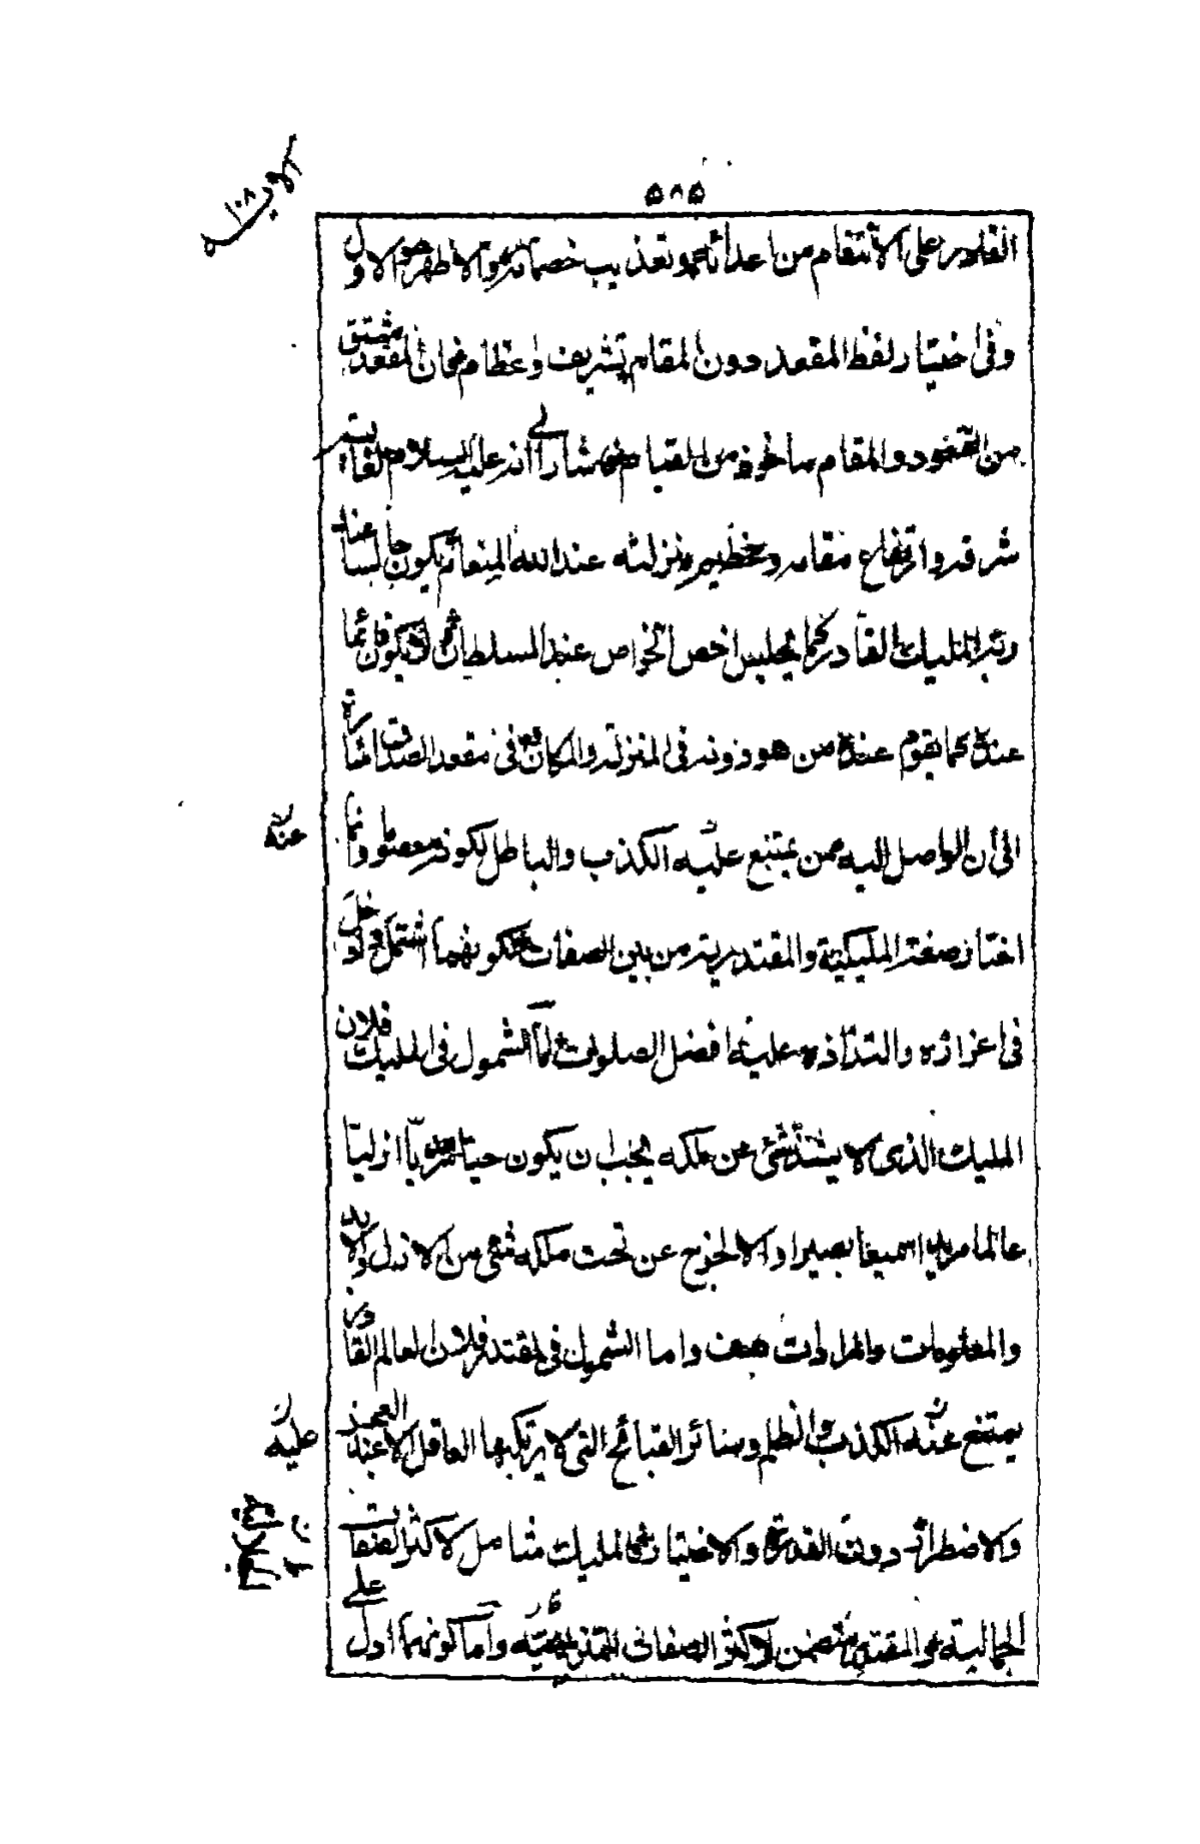 ٥٨٥
الآية ١٠٨
القادر على الانتقام من اعدائهم وتعذيب خصمائهم والاظهر هو الاول
وفى اختيار لفظ المقعد دون المقام تشريف واعظام فان المقعد مشتق
من القعود والمقام ماخوذ من القيام فاشار الى انه عليه السلام لغاية
شرفه وارتفاع مقامه وخطير منزلته عند الله المنعام يكون جالسا عند
ربه المليك القادر كما يجلس اخص الخواص عند السلطان ولا يكون قائما
عنده كما يقوم عنده من هو دونه فى المنزلة والمكان وفى مقعد الصدق اشارة
الى أن الواصل اليه ممن يمتنع عليه الكذب والباطل لكونه معصوما وانما
عنه
اختار صفة المليكية والمقتدرية من بين الصفات لكونهما اشمل وادخل
فى اعزازه والتذاذه عليه افضل الصلوات اما الشمول فى المليك فلان
المليك الذى لا يشذ شئ عن ملكه يجب ان يكون حيا ازليا
عالما مريدا سميعا بصيرا والا لخرج عن تحت ملكه شئ من الازل والابد
والمعلومات والمرادات هف واما الشمول فى المقتدر فلان العالم القادر
يمتنع عنه الكذب والظلم وسائر القبائح التى لا يرتكبها العاقل الا عند العجز
عليه
والاضطرار دون القدرة والاختيار فالمليك شامل لاكثر الصفات
الجمالية والمقتدر متضمن لاكثر الصفات واما كونهما ادل على